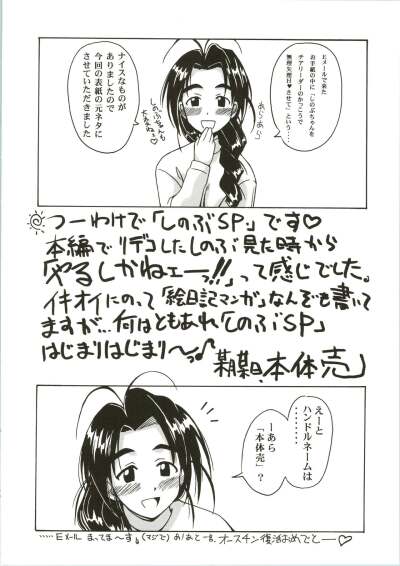 Eメールで来た
お手紙の中に「しのぶちゃんを
チアリーダーのかっこうで
無理矢理H♥させて」という…
ナイスなものが
ありましたので
今回の表紙の元ネタに
させていただきました
あらあら
しのぶちゃんも
大変ねぇ
つーわけで「しのぶSP」です♡
本編でリデコしたしのぶ見た時から
「やるしかねェーっ!!」って感じでした。
イキオイにのって「絵日記マンガ」なんぞも書いて
ますが…何はともあれ「しのぶSP」
はじまりはじまり〜っ♪
某月某日、本体売
えーと
ハンドルネームは
………
ーあら
「本体売」?
……Eメール まってま〜す。(マジで)
オースチン復活おめでとー♡